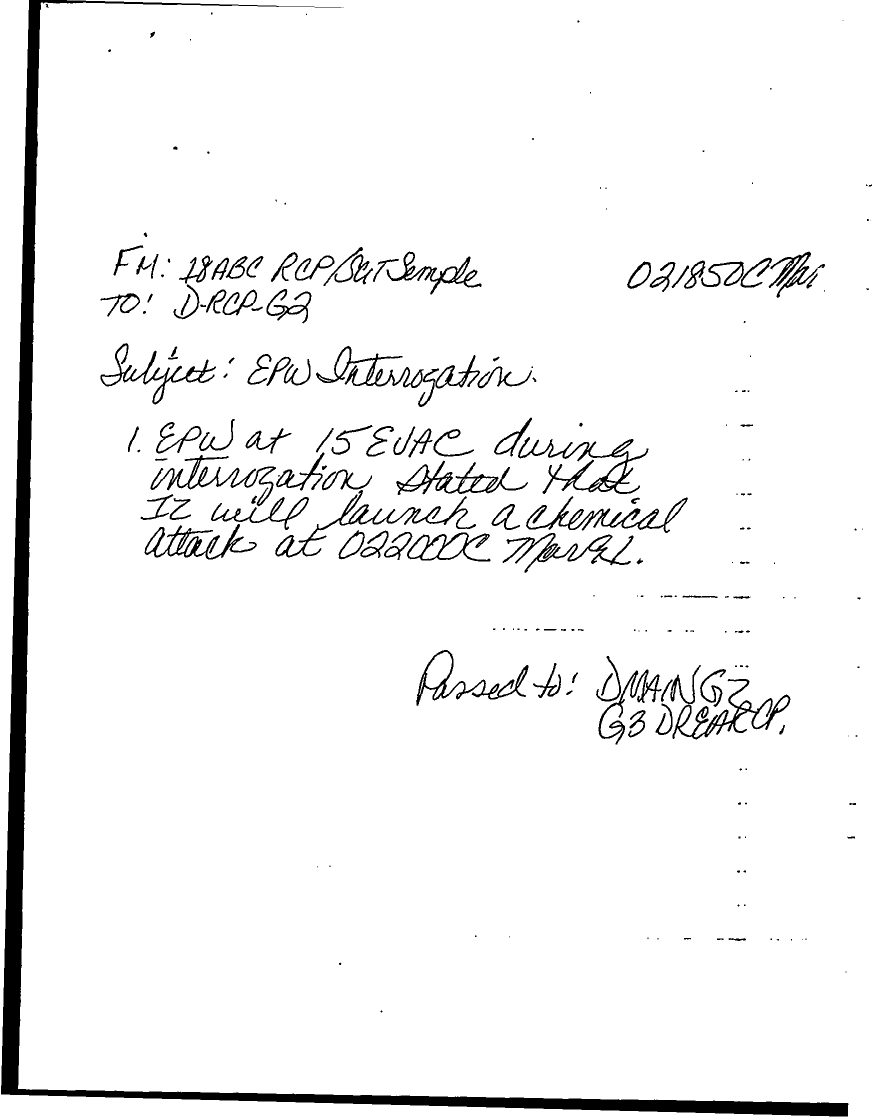 FM: 18ABC RCP/SGT Semple 021850C Mar
TO: D-RCP-G2
Subject: EPW Interrogation.
1. EPW at 15 EVAC during
interrogation stated that
IZ will launch a chemical
attack at 022000C Mar91.
Passed to: DMAIN G2
G3 DREAR CP.